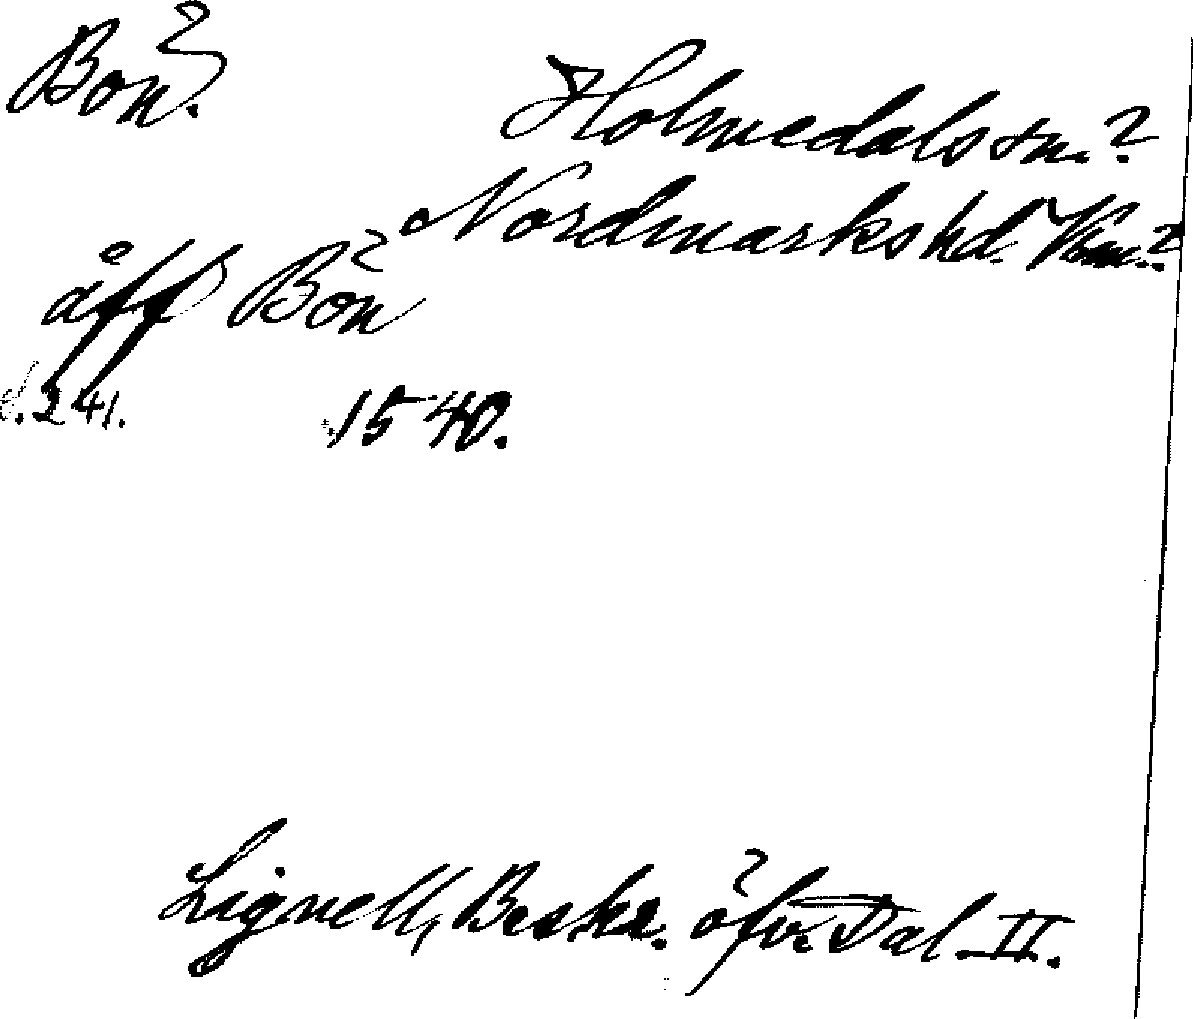 Bön.
Holmedals sn.?
Nordmarks hd. Vrm.?
åff Bön
s. 241. 1540.
Lignell, Beskr. öfv. Dal. II.